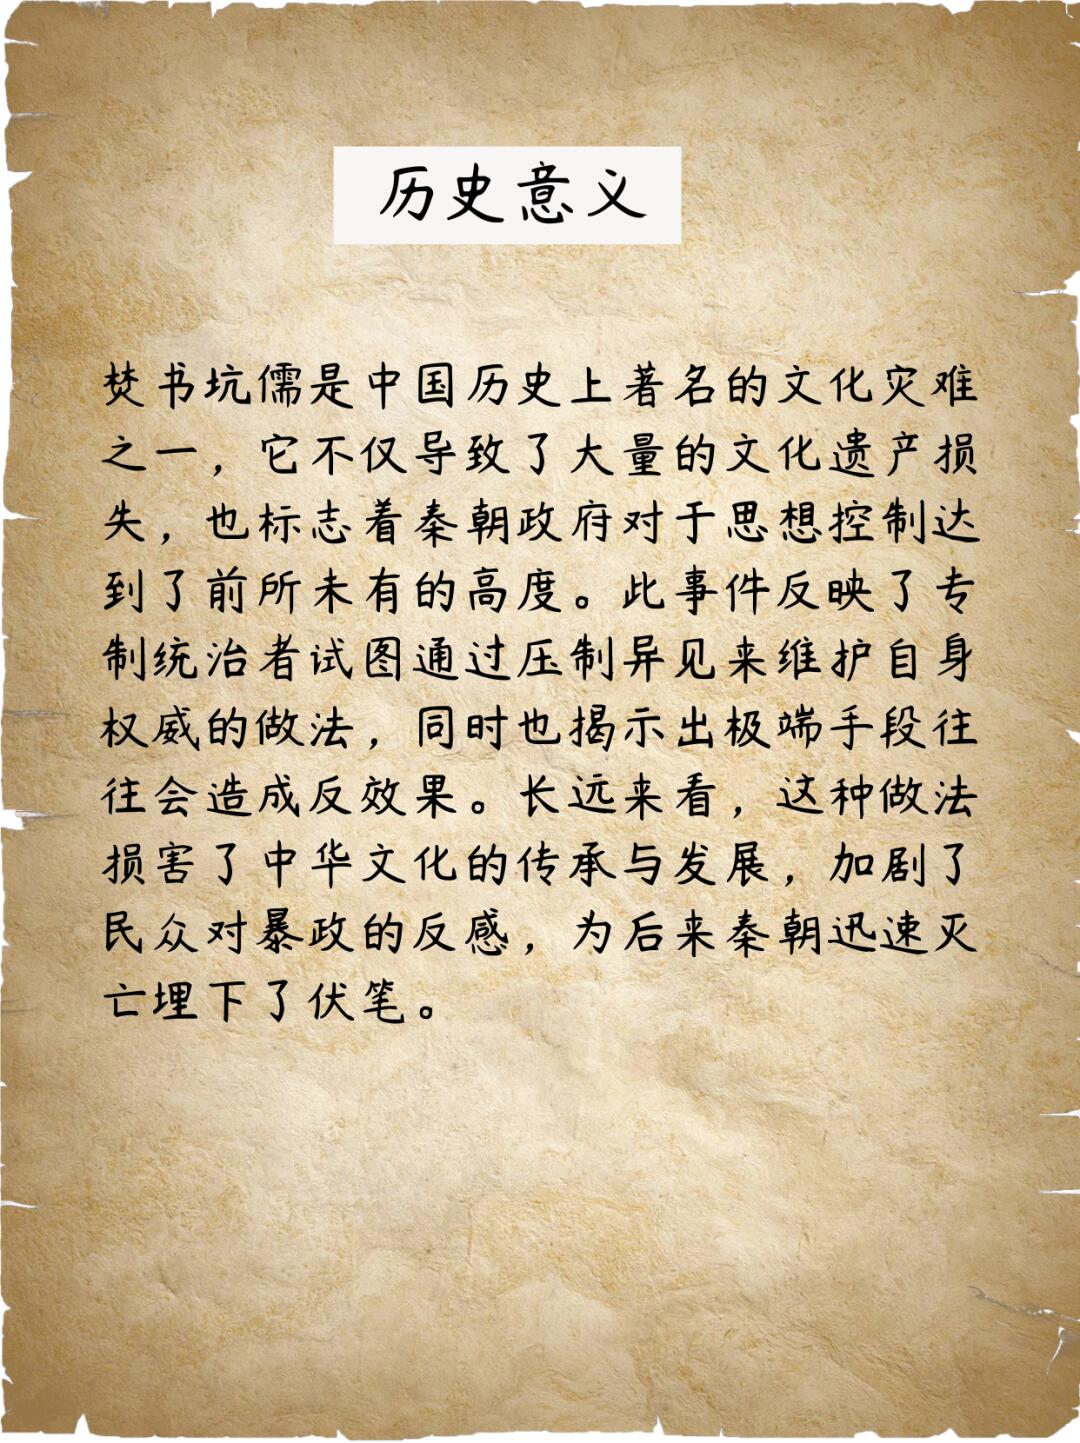 历史意义
焚书坑儒是中国历史上著名的文化灾难
之一，它不仅导致了大量的文化遗产损
失，也标志着秦朝政府对于思想控制达
到了前所未有的高度。此事件反映了专
制统治者试图通过压制异见来维护自身
权威的做法，同时也揭示出极端手段往
往会造成反效果。长远来看，这种做法
损害了中华文化的传承与发展，加剧了
民众对暴政的反感，为后来秦朝迅速灭
亡埋下了伏笔。